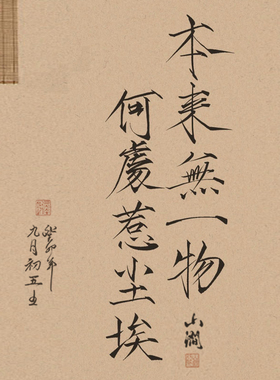 本来無一物
何處惹尘埃
山澗
癸卯年
九月初五